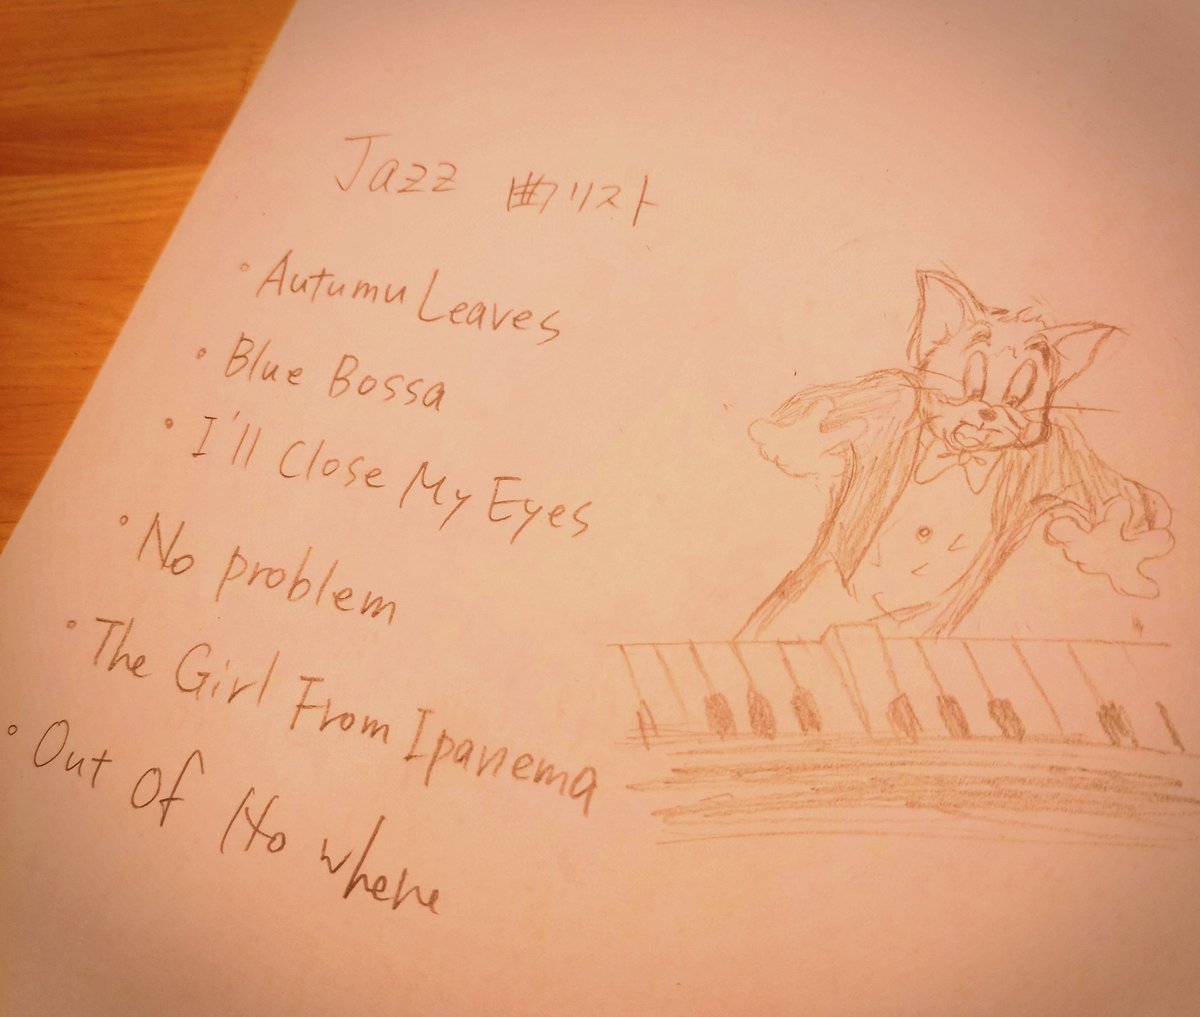 Jazz 曲リスト
• Autumu Leaves
• Blue Bossa
• I'll Close My Eyes
• No problem
• The Girl From Ipanema
• Out Of No where